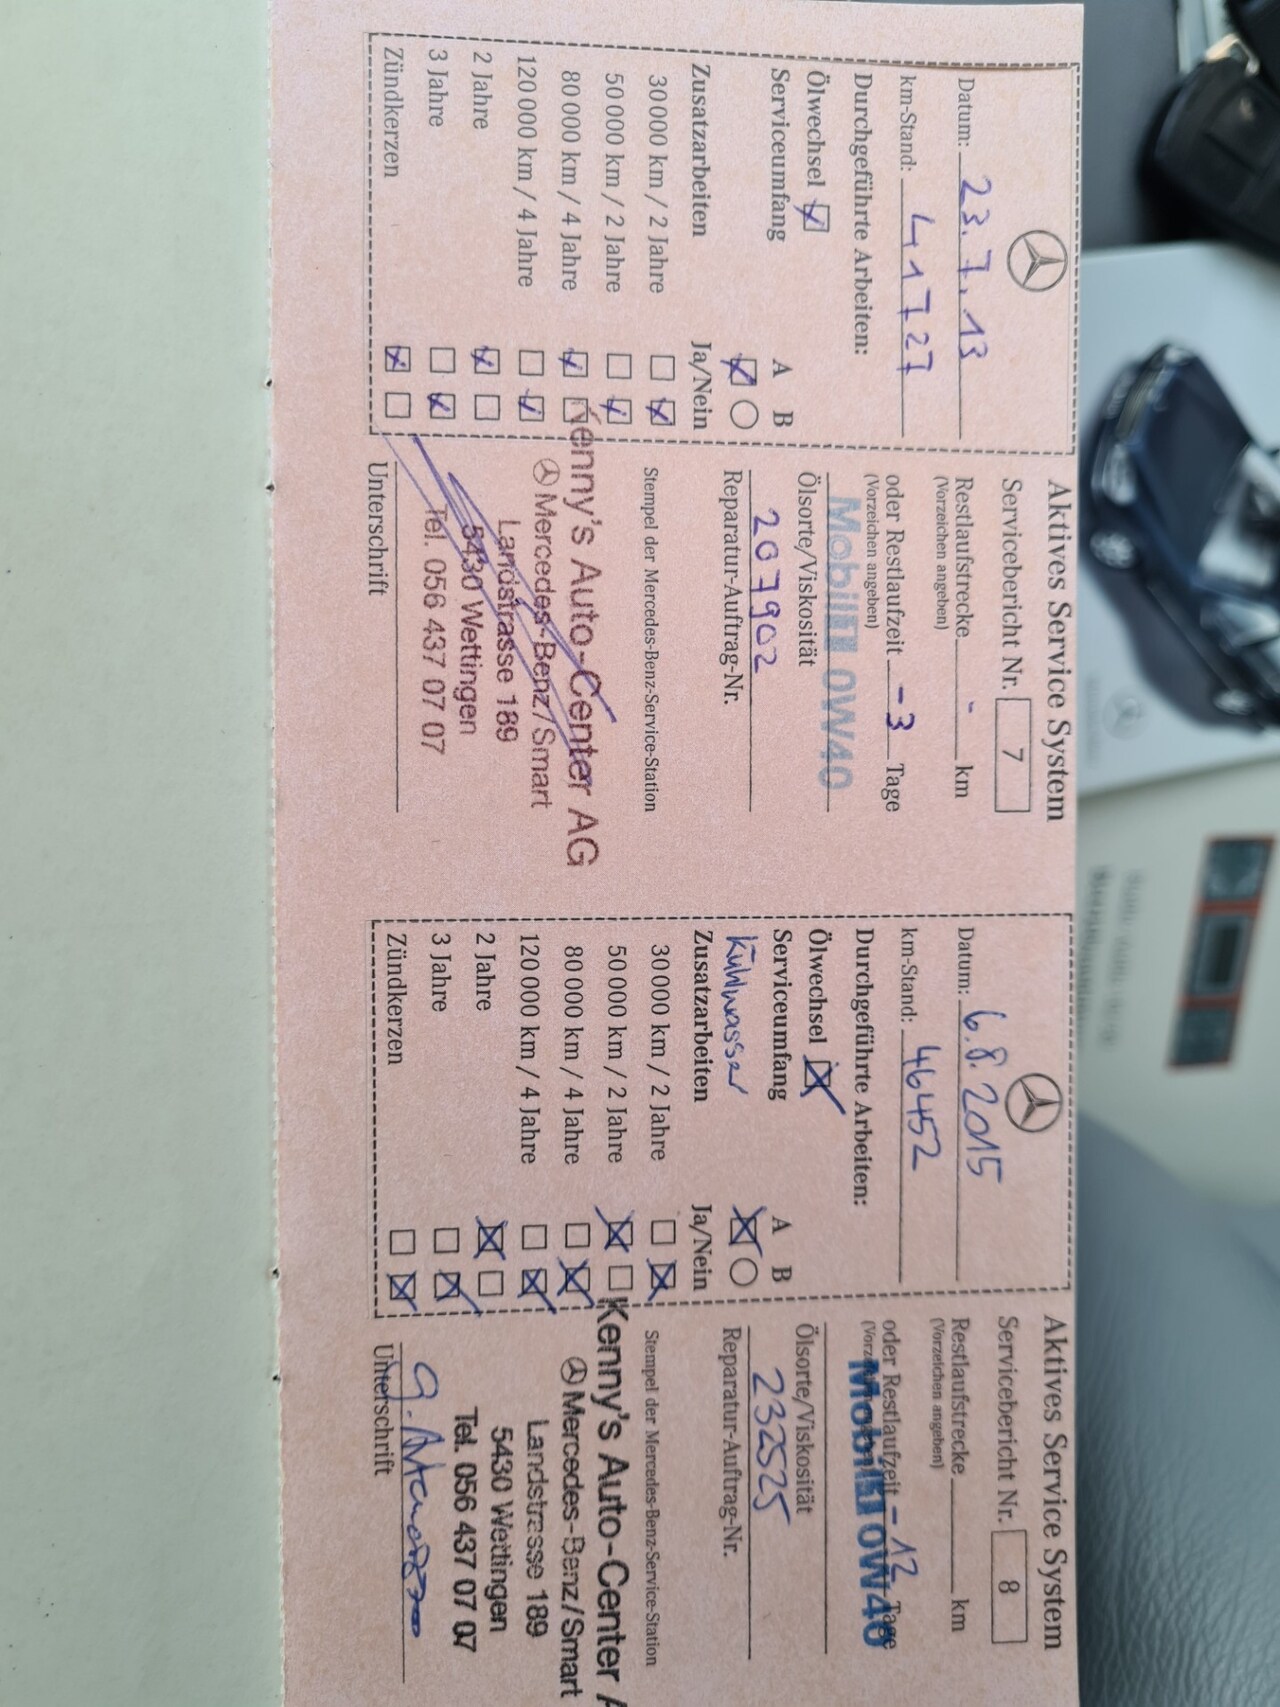 Aktives Service System
Servicebericht Nr. 7
Datum: 23.7.13
Restlaufstrecke - km
(Vorzeichen angeben)
km-Stand: 41727
oder Restlaufzeit -3 Tage
(Vorzeichen angeben)
Durchgeführte Arbeiten:
Mobil 1 0W40
Ölwechsel
Ölsorte/Viskosität
Serviceumfang A B
207902
Reparatur-Auftrag-Nr.
Zusatzarbeiten Ja/Nein
30 000 km / 2 Jahre
50 000 km / 2 Jahre
80 000 km / 4 Jahre
120 000 km / 4 Jahre
2 Jahre
3 Jahre
Zündkerzen
Stempel der Mercedes-Benz-Service-Station
Kenny's Auto-Center AG
Mercedes-Benz/Smart
Landstrasse 189
5430 Wettingen
Tel. 056 437 07 07
Unterschrift
Aktives Service System
Servicebericht Nr. 8
Datum: 6.8.2015
Restlaufstrecke km
(Vorzeichen angeben)
km-Stand: 46452
oder Restlaufzeit -12 Tage
Mobil 1 0W40
Durchgeführte Arbeiten:
Ölwechsel
Ölsorte/Viskosität
Serviceumfang A B
Kühlwasser
232525
Reparatur-Auftrag-Nr.
Zusatzarbeiten Ja/Nein
30 000 km / 2 Jahre
50 000 km / 2 Jahre
80 000 km / 4 Jahre
120 000 km / 4 Jahre
2 Jahre
3 Jahre
Zündkerzen
Stempel der Mercedes-Benz-Service-Station
Kenny's Auto-Center
Mercedes-Benz/Smart
Landstrasse 189
5430 Wettingen
Tel. 056 437 07 07
Unterschrift